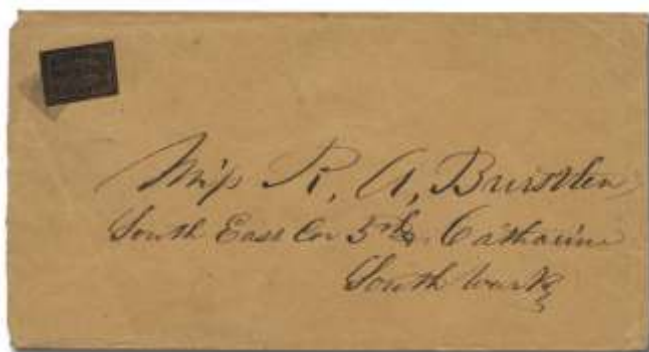 Miss R, A, Brisslen
South East Cor 5th & Catharine
South wark